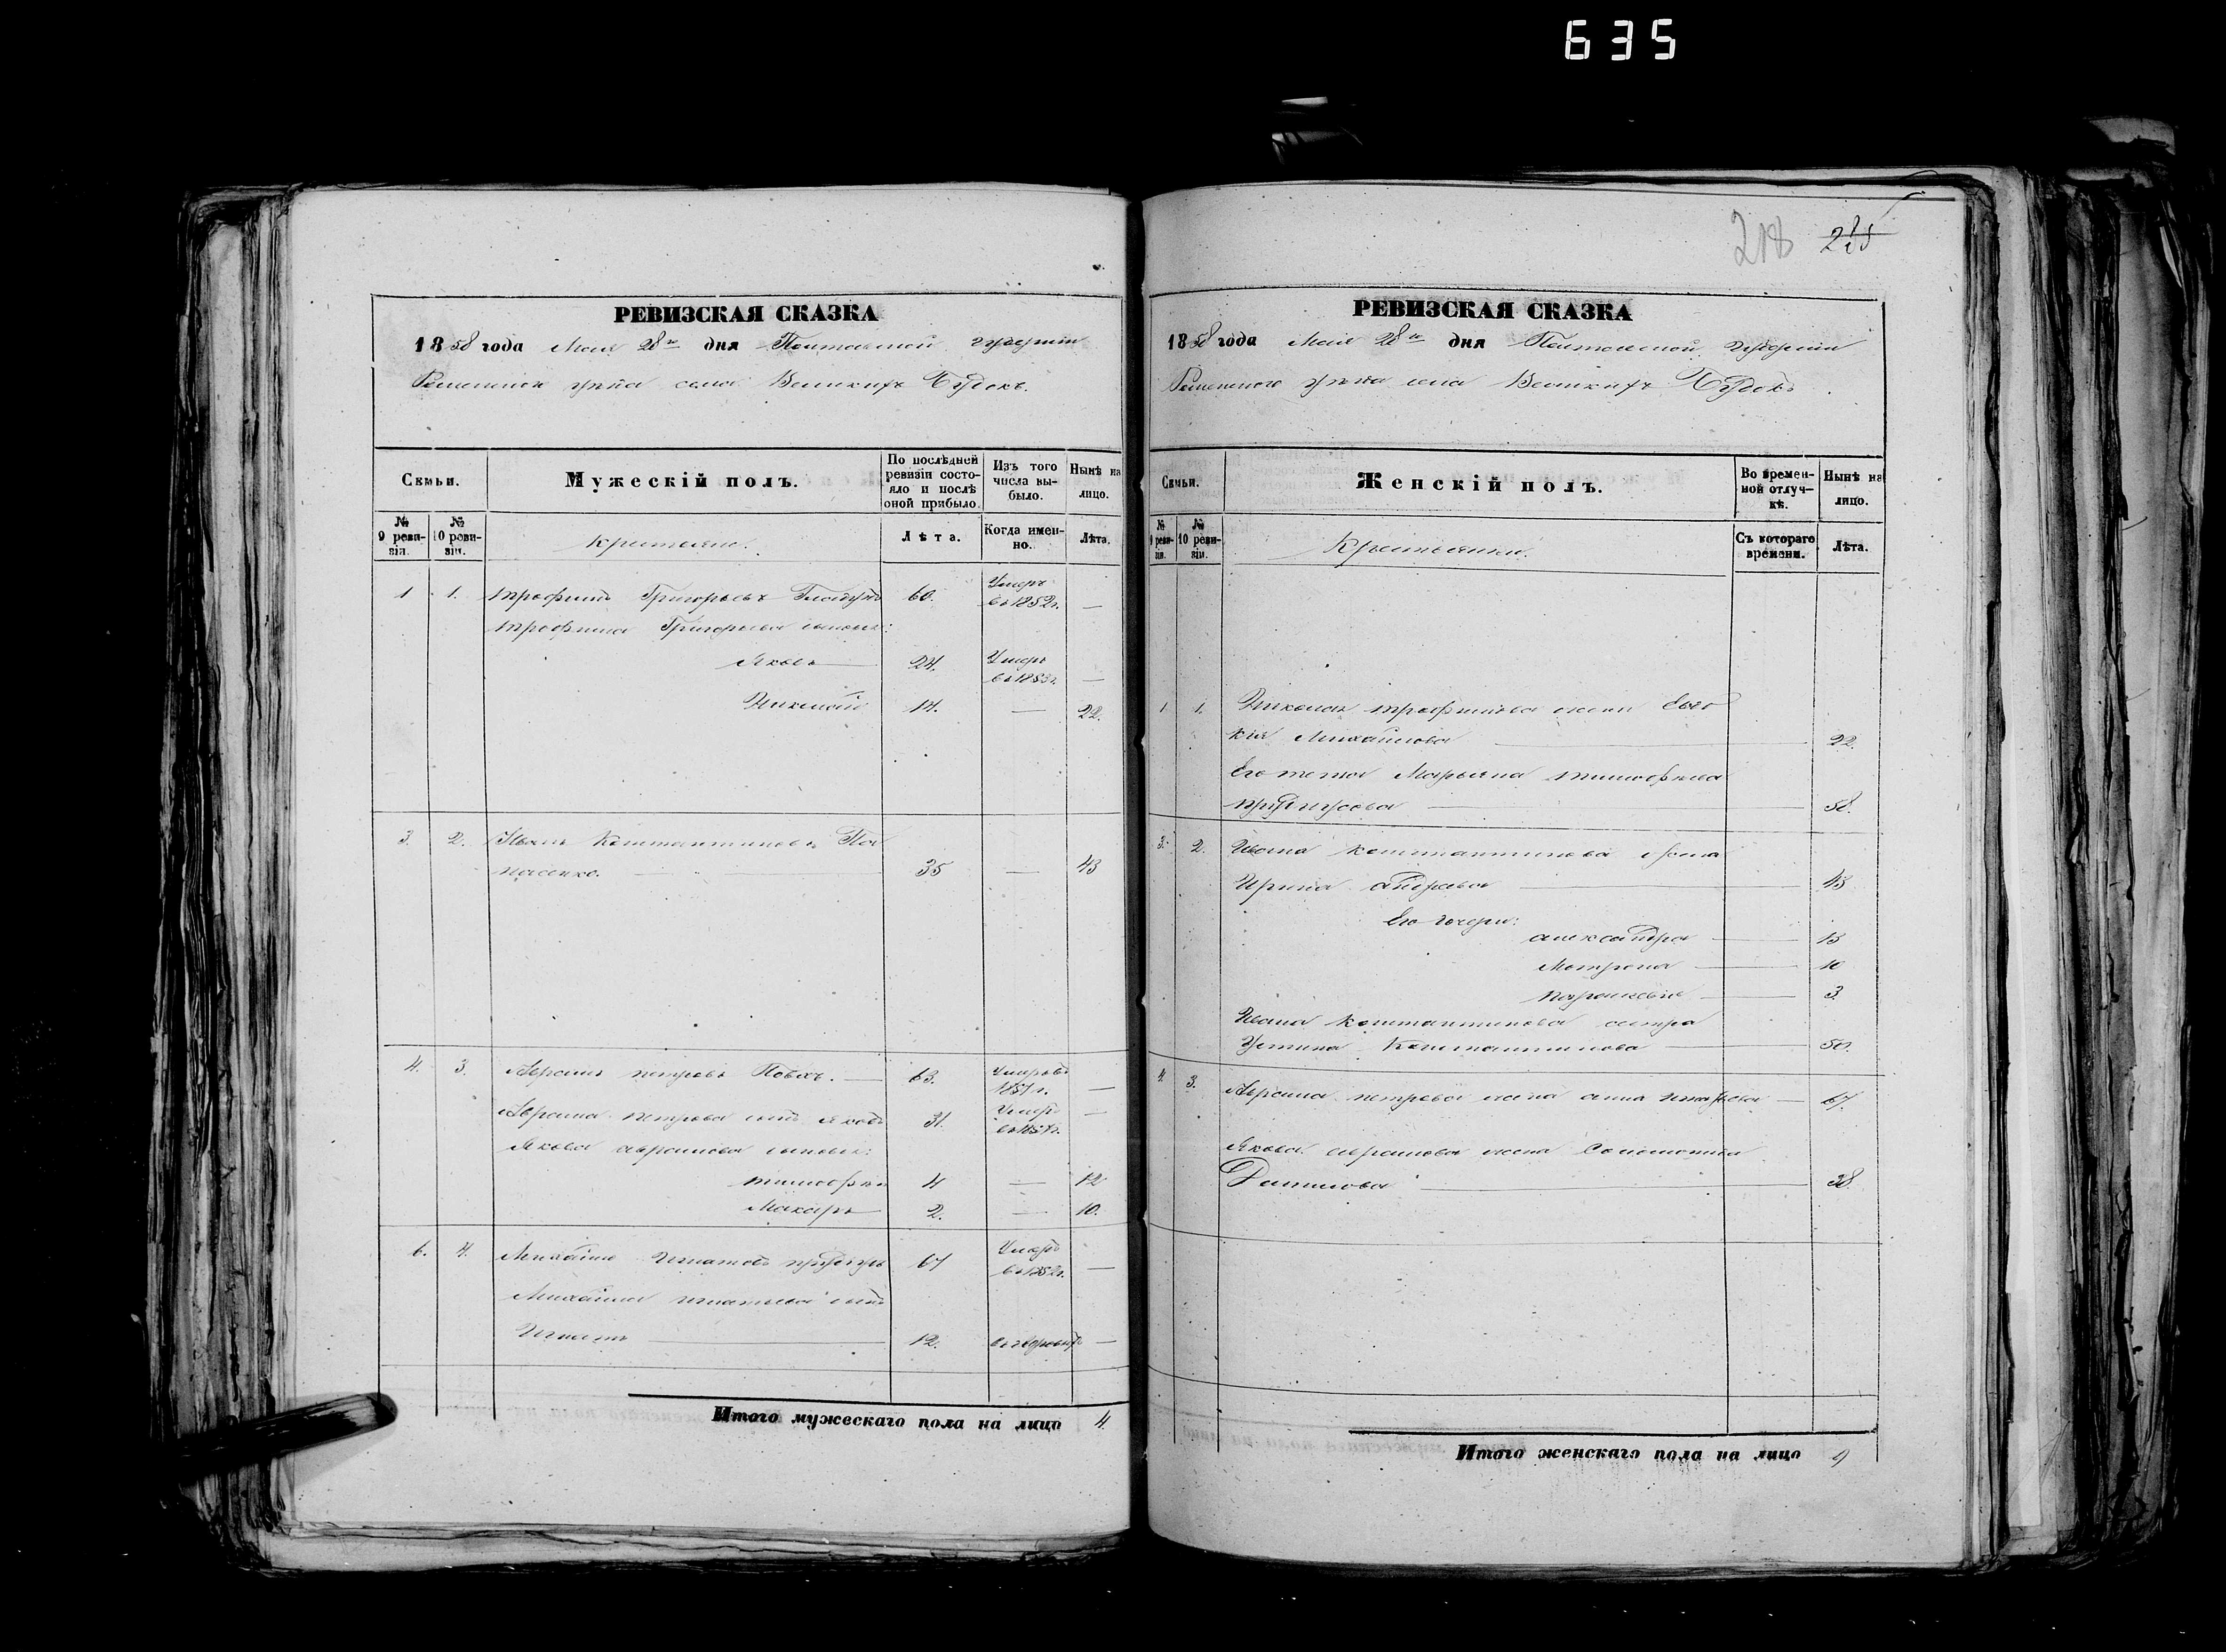 635
218 218
РЕВИЗСКАЯ СКАЗКА
1858 года Мая 28го дня Полтавской губерніи
уѣзда села Великихъ Будокъ.
Сѣмьи.
Мужескій полъ.
По послѣдней ревизіи состояло и послѣ оной прибыло.
Изъ того числа выбыло.
Нынѣ на лицо.
№ 9 ревизіи.
№ 10 ревизіи.
Крестьяне.
Лѣта.
Когда именно.
Лѣта.
1 1. Трофимъ Григорьевъ 60. Умеръ въ 1852г. —
Трофима Григорьева сыновья:
Яковъ 24. Умеръ —
Николай 14. — 22.
3. 2. Иванъ Константиновъ Па
насенко. 35 — 43
4. 3. Аврамъ Петровъ 63. Умеръ въ —
Аврама Петрова сынъ Яковъ 31. Умеръ —
Якова Аврамова сыновья:
Тимофей 4 — 12
Макаръ 2. — 10.
6. 4. Михайло Игнатовъ 67 Умеръ въ 1852г. —
Михайла Игнатьева сынъ
Игнатъ 12. —
Итого мужескаго пола на лицо 4.
РЕВИЗСКАЯ СКАЗКА
1858 года Мая 28го дня Полтавской губерніи
уѣзда села Великихъ Будокъ
Сѣмьи.
Женскій полъ.
Во временной отлучкѣ.
Нынѣ на лицо.
№ 9 ревизіи.
№ 10 ревизіи.
Крестьянки.
Съ котораго времени.
Лѣта.
1 1. Николая Трофимова жена Евдо
кія Михайлова 22.
Его тетка Марьяна Тимофеева
58.
3. 2. Ивана Константинова жена
Ирина Андреева 43
Его дочери:
Александра 13
Мотрона 10
Параскевія 3.
Ивана Константинова сестра
Устина Константинова 50.
4. 3. Аврама Петрова жена Анна 67.
Якова Аврамова жена Соломонія
Данилова 38.
Итого женскаго пола на лицо 9